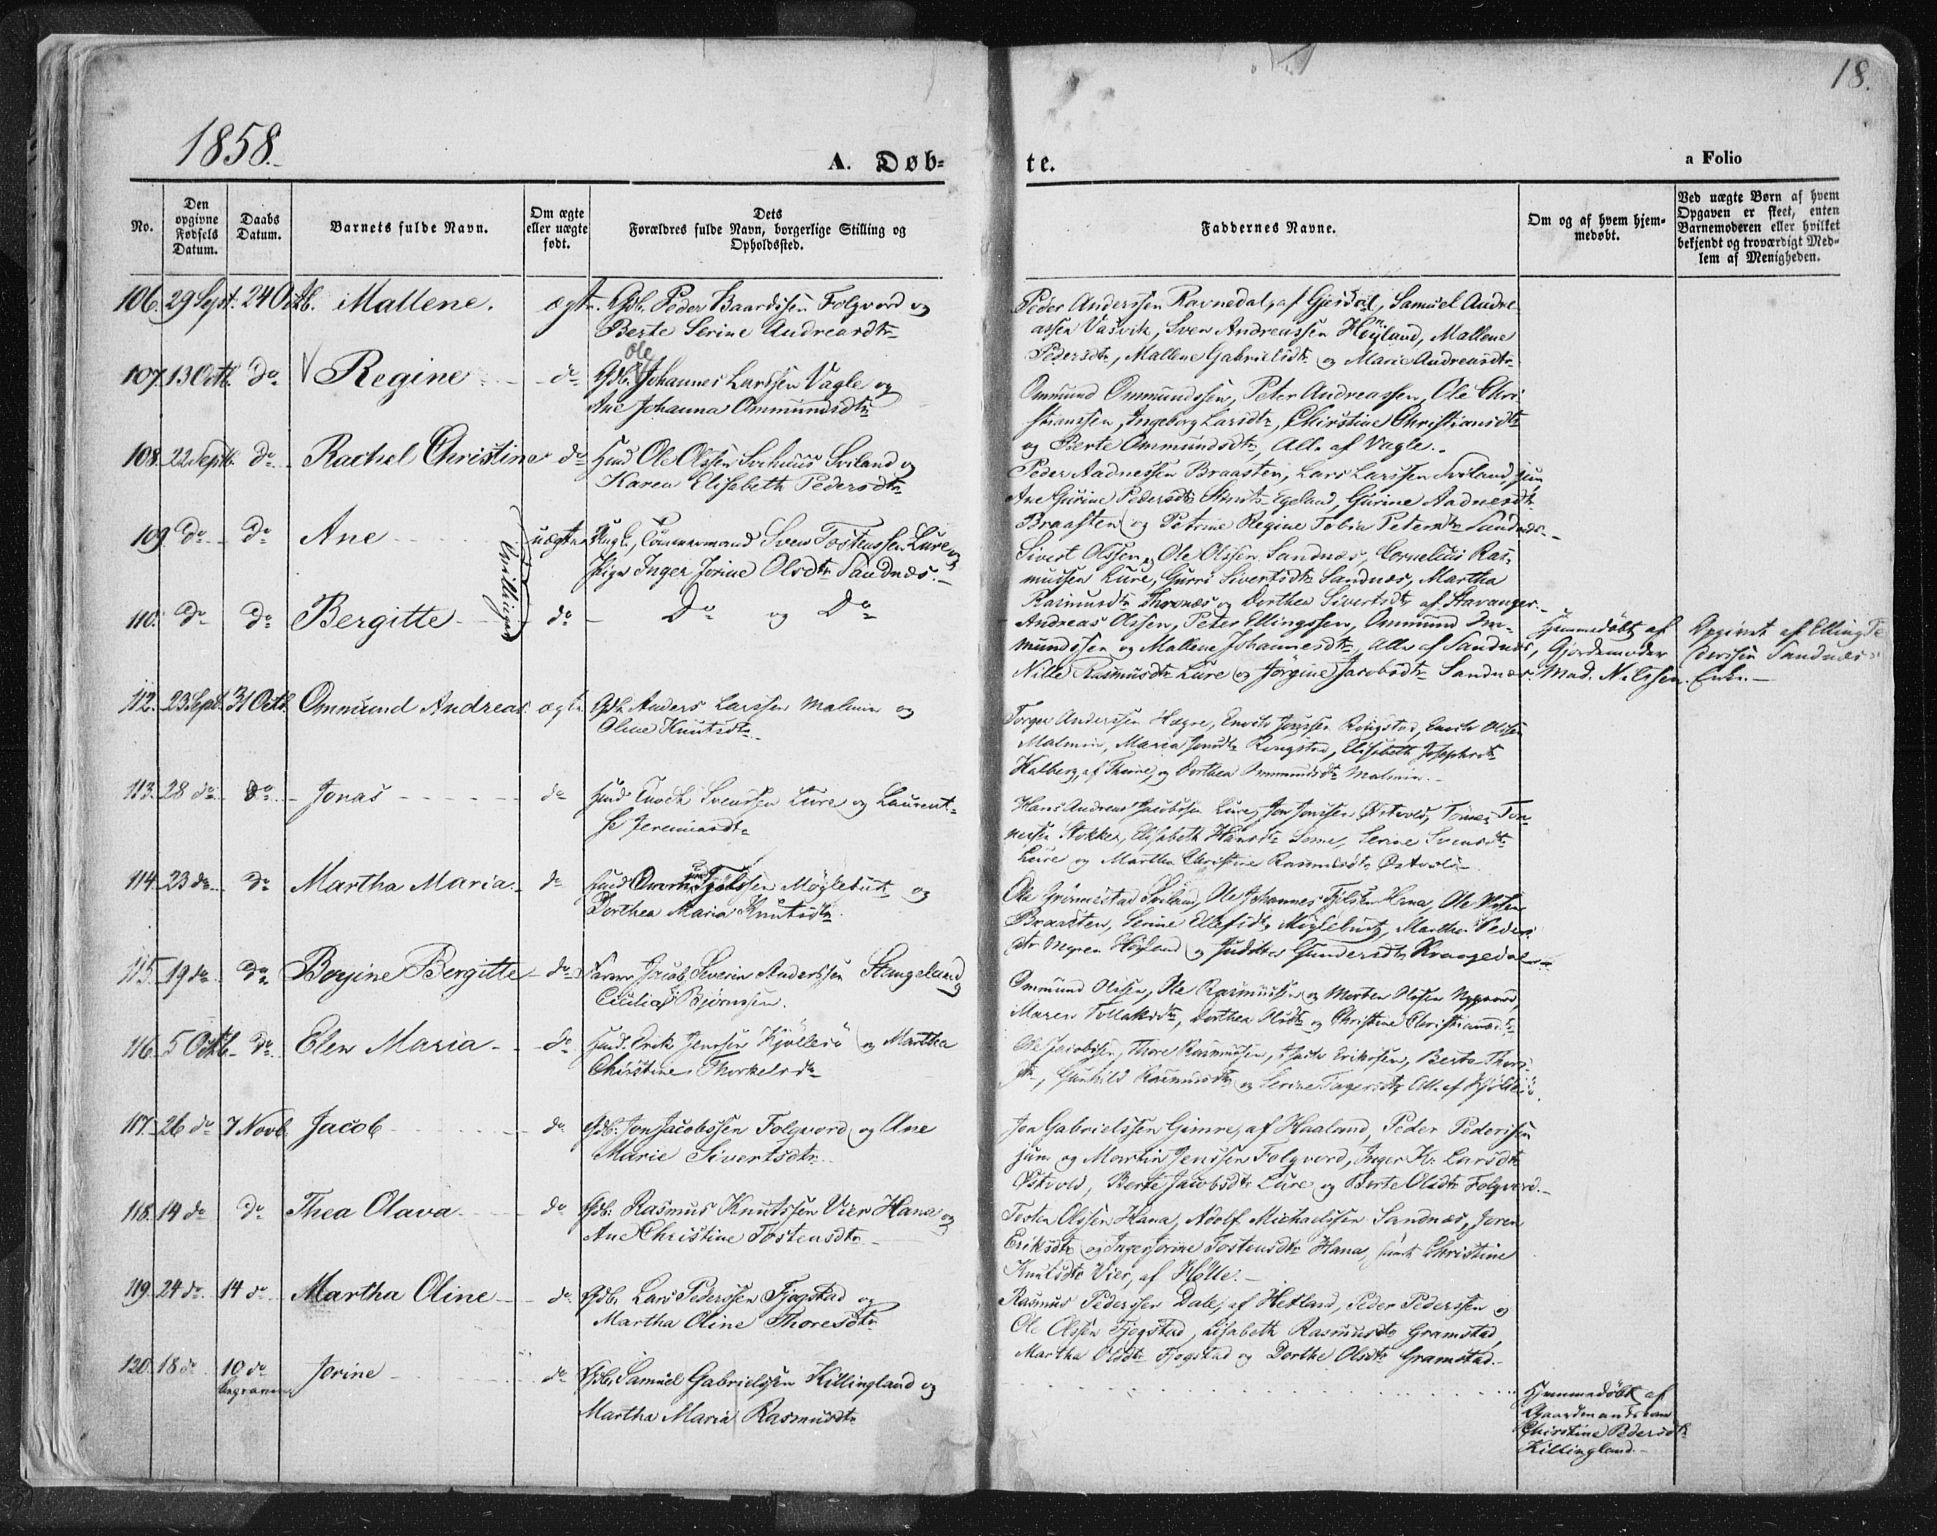 18.
1858.
A. Døb-
te.
a Folio
No.
Den opgivne Fødsels Datum.
Daabs Datum.
Barnets fulde Navn.
Om ægte eller uægte født.
Dets Forældres fulde Navn, borgerlige Stilling og Opholdssted.
Faddernes Navne.
Om og af hvem hjem-
medøbt.
Ved uægte Børn af hvem
Opgaven er skeet, enten
Barnemoderen eller hvilket
bekjendt og troværdigt Med-
lem af Menigheden.
106. 29 Sept. 24 Octb. Mallene. ægte. Gdb. Peder Baardssen Folgvord og
Berte Serine Andreasdtr
Peder Anderssen Ravnedal, af Gjesdal, Samuel Andre-
assen Vasvik, Sven Andreassen Høyland, Mallene
Pedersdtr, Mallene Gabrielsdtr og Marie Andreasdtr
107. 13 Octb. do Regine do Gdb. Ole Johannes Larssen Vagle og
Ane Johanna Ommundsdtr
Ommund Ommundssen, Peter Andreassen, Ole Chri-
stianssen, Ingeborg Larsdtr, Christine Christiansdtr
og Berte Ommundsdtr, Alle af Vagle.
108. 22 Septb. do Rachel Christine do Huusd Ole Olssen Sviland og
Karen Elisabeth Pedersdtr
Peder Aadnessen Braasten, Lars Larssen Sviland, jun
Ane Gurine Pedersdtr Egeland, Gurine Aadnesdtr
Braasten og Petrine Regine Tobia Petersdtr Sandnæs.
109 do do Ane uægte Ungk. Tømmermand Sven Tostenssen Lure og
Pige Inger Jorine Olsdtr Sandnæs.
Tvillinger
Sivert Olssen og Ole Olssen Sandnæs, Cornelius Ras-
mussen Lure, Gurri Sivertsdtr Sandnæs, Martha
Rasmusdtr og Dorthea Sivertsdtr af Stavanger.
110. do do Bergitte do Do og Do
Andreas Olssen, Peter Ellingssen, Ommund Om-
mundssen og Mallene Johannesdtr, Alle af Sandnæs,
Nille Rasmusdtr Lure og Jørgine Jacobsdtr Sandnæs.
Hjemmedøbt af
Gjordemoder
Mad. Nilssen.
Opgivet af Elling Pe
derssen Sandnæs
Enke.
112. 23 Sept. 31 Octb. Ommund Andreas. ægte Gdb. Anders Larssen Malmin og
Oline Knutsdtr
Torger Anderssen Høgre, Enoch Jonssen Ringstad, Enoch Olssen
Malmin, Maria Jonsdtr Ringstad, Elisabeth Josephsdtr
Halberg, af Thime, og Dorthea Ommundsdtr Malmin.
113. 28 do do Jonas do Huusd Enoch Svenssen Lure og Laurent-
se Jeremiasdtr
Hans Andreas Jacobssen Lure, Jon Jonssen Østvold, Tønnes Tøn-
nessen Stokke, Elisabeth Hansdtr Some, Serine Svensdtr
Lure og Martha Christine Rasmusdtr Østvold
114. 23 do do Martha Maria do Huusd Tjølssen Møglebust og
Dorthea Maria Knutsdtr.
Ole Sviland, Ole Johannes Tjølssen Hana, Ole
Braasten, Serine Ellefsdtr Møglebust, Martha Peders-
dtr Høyland og Judithe Gundersdtr Kraagedal
115. 19 do do Bojine Bergitte do Jacob Severin Anderssen Stangeland og
Cecilia Bjørnssen.
Ommund Olssen, Ole Rasmussen og Morten Olssen
Maren Tollaksdtr, Dorthea Olsdtr og Christine Christiansdtr
116. 5 Octb. do Elen Maria do Huusd. Jenssen Kjøllesø og Martha
Christine Thorkelsdtr
Ole Jacobssen, Thore Rasmussen, Erikssen, Berta Thores-
dtr, Gunhild Rasmusdtr og Serine Aagesdtr Alle af Kjøllesø.
117. 26 do 7 Novb. Jacob do Gdb. Jon Jacobssen Folgvord og Ane
Marie Sivertsdtr
Jon Gabrielssen Gimre, af Haaland, Peder Pederssen
jun. og Martin Jenssen Folgvord, Inger K. Larsdtr
Østvold, Berte Jacobsdtr Lure og Berte Olsdtr Folgvord.
118. 14 do do Thea Olava do Gdb. Rasmus Knutssen Vier Hana og
Ane Christine Tostensdtr
Tosten Olssen Hana, Adolf Michaelssen Sandnæs, Joren
Eriksdtr og Inger Jorine Tostensdtr Hana, samt Christine
Knutsdtr Vier, af Hølle.
119. 24 do. 14 do Martha Oline do Gdb. Lars Pederssen Fjogstad og
Martha Oline Thoresdtr
Rasmus Pederssen Dale, af Hetland, Peder Pederssen og
Ole Olssen Fjogstad, Lisabeth Rasmusdtr Gramstad,
Martha Olsdtr Fjogstad og Dorthe Olsdtr Gramstad.
120. 18 do 10 do begraven Jorine do Gdb. Samuel Gabrielssen Killingland og
Martha Maria Rasmusdtr
Hjemmedøbt af
Gaardmandskone
Christine Pedersdtr
Killingland.